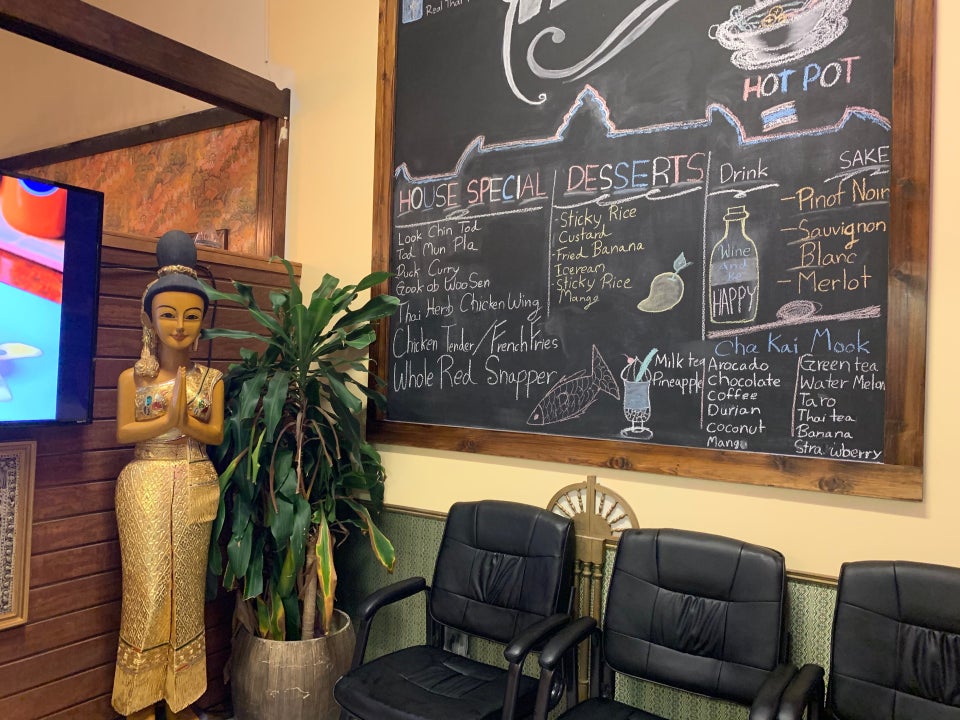 Real Thai
HOT POT
HOUSE SPECIAL
Look Chin Tod
Tod Mun Pla
Duck Curry
Gook ob WooSen
Thai Herb Chicken Wing
Chicken Tender/French Fries
Whole Red Snapper
DESSERTS
-Sticky Rice
Custard
-Fried Banana
Icecream
-Sticky Rice
Mango
Drink
SAKE
Wine
And
Be
HAPPY
-Pinot Noir
-Sauvignon
Blanc
-Merlot
Cha Kai Mook
Milk tea
Pineapple
Arocado
Chocolate
Coffee
Durian
Coconut
Mango
Green tea
Water Melon
Taro
Thai tea
Banana
Strawberry